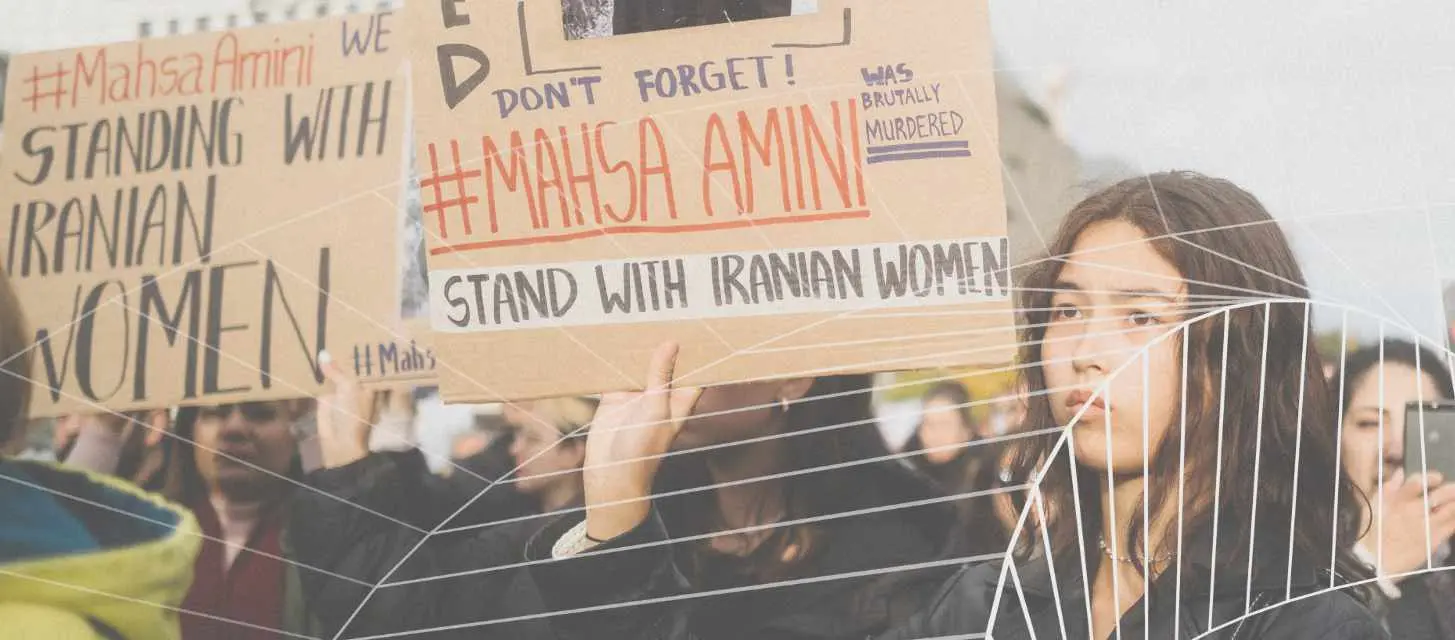 #MahsaAmini WE
STANDING WITH
IRANIAN
WOMEN
#Mahs
E
D
DON'T FORGET!
#MAHSA AMINI
WAS
BRUTALLY
MURDERED
STAND WITH IRANIAN WOMEN